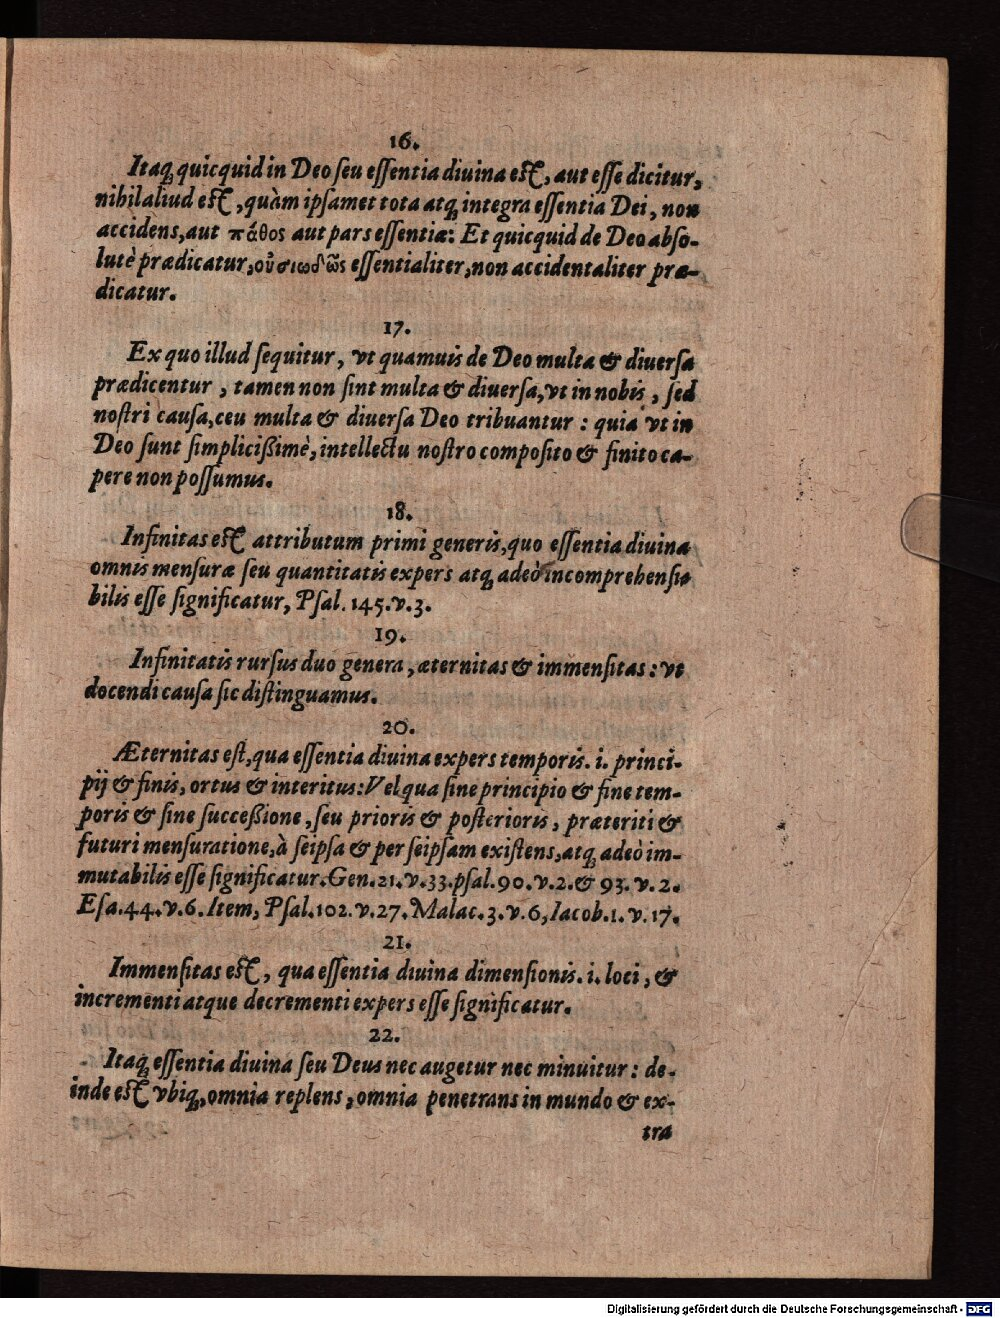 16.
Itaq; quicquid in Deo ſeu eſſentia diuina eſt, aut eſſe dicitur,
nihil aliud eſt, quàm ipſamet tota atq; integra eſſentia Dei, non
accidens, aut πάθος aut pars eſſentiæ: Et quicquid de Deo abſo-
lutè prædicatur, οὐσιωδῶς eſſentialiter, non accidentaliter præ-
dicatur.
17.
Ex quo illud ſequitur, vt quamuis de Deo multa & diuerſa
prædicentur, tamen non ſint multa & diuerſa, vt in nobis, ſed
noſtri cauſa, ceu multa & diuerſa Deo tribuantur: quia vt in
Deo ſunt ſimplicißimè, intellectu noſtro compoſito & finito ca-
pere non poſſumus.
18.
Infinitas eſt attributum primi generis, quo eſſentia diuina
omnis menſuræ ſeu quantitatis expers atq; adeò incomprehenſi-
bilis eſſe ſignificatur, Pſal. 145. v. 3.
19.
Infinitatis rurſus duo genera, æternitas & immenſitas: vt
docendi cauſa ſic diſtinguamus.
20.
Æternitas eſt, qua eſſentia diuina expers temporis. i. princi-
pij & finis, ortus & interitus: Vel qua ſine principio & fine tem-
poris & ſine ſucceßione, ſeu prioris & poſterioris, præteriti &
futuri menſuratione, à ſeipſa & per ſeipſam exiſtens, atq; adeò im-
mutabilis eſſe ſignificatur. Gen. 21. v. 33. pſal. 90. v. 2. & 93. v. 2.
Eſa. 44. v. 6. Item, Pſal. 102. v. 27. Malac. 3. v. 6, Iacob. 1. v. 17.
21.
Immenſitas eſt, qua eſſentia diuina dimenſionis. i. loci, &
incrementi atque decrementi expers eſſe ſignificatur.
22.
Itaq; eſſentia diuina ſeu Deus nec augetur nec minuitur: de-
inde eſt vbiq;, omnia replens, omnia penetrans in mundo & ex-
tra
Digitalisierung gefördert durch die Deutsche Forschungsgemeinschaft - DFG